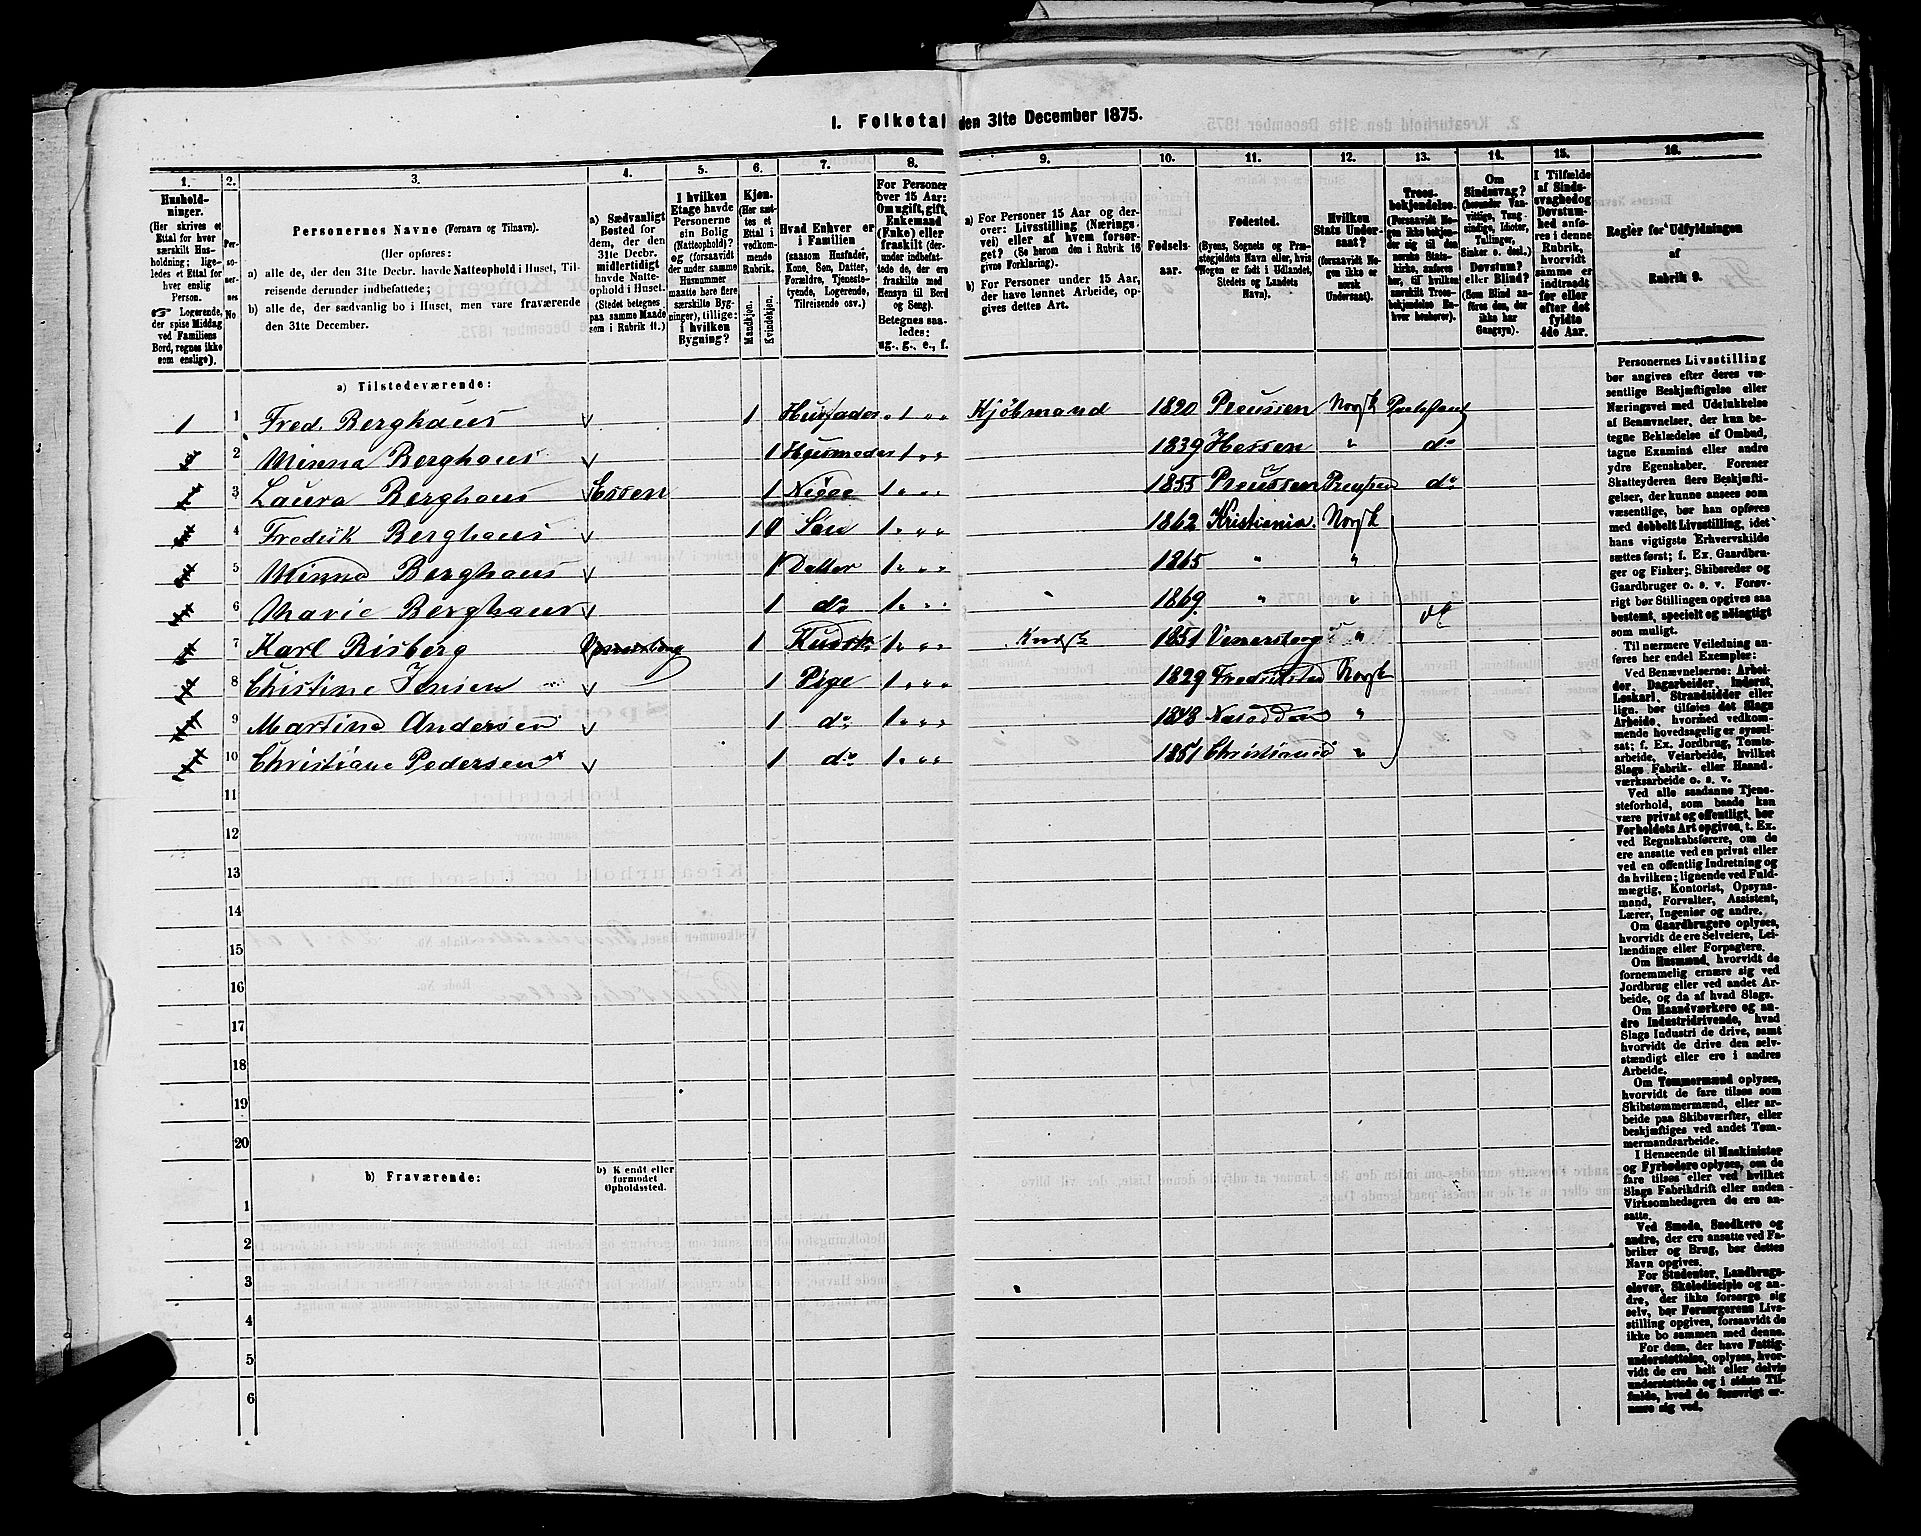 1. Folketal den 31te December 1875.
1. 2. 3. 4. 5. 6. 7. 8. 9. 10. 11. 12. 13. 14. 15. 16.
Husholdninger.
(Her skrives et
Ettal for hver
særskilt Husholdning;
ligeledes et Ettal for
hver enslig
Person.
Logerende,
der spise Middag
ved Familiens
Bord, regnes ikke
som enslige).
Personernes No
Personernes Navne (Fornavn og Tilnavn).
(Her opføres:
a) alle de, der den 31te Decbr. havde Natteophold i Huset, Tilreisende derunder indbefattede;
b) alle de, der sædvanlig bo i Huset, men vare fraværende
den 31te December.
a) Sædvanligt
Bosted for
dem, der den
31te Decbr.
midlertidigt
havde Natteophold i Huset.
(Stedet betegnes
paa samme Maade
som i Rubrik 11.)
I hvilken
Etage havde
Personerne
sin Bolig
(Natteophold)?
og (forsaavidt
der under samme
Husnummer
maatte høre flere
særskilte Bygninger), tillige:
i hvilken
Bygning?
Kjøn.
(Her sættes et
Ettal i
vedkommende
Rubrik.)
Mandkjøn.
Kvindekjøn.
Hvad Enhver er
i Familien
(saasom Husfader,
Kone, Søn, Datter,
Forældre, Tjenestetyende, Logerende,
Tilreisende osv.)
For Personer
over 15 Aar:
Om ugift, gift,
Enkemand
(Enke) eller
fraskilt (derunder indbefattede de, der ere
fraskilte med
Hensyn til Bord
og Seng).
Betegnes saaledes:
ug., g., e., f.
a) For Personer 15 Aar og derover: Livsstilling (Næringsvei) eller af hvem forsørget? (Se herom den i Rubrik 16
givne Forklaring).
b) For Personer under 15 Aar,
der have lønnet Arbeide, opgives dettes Art.
Fødselsaar.
Fødested.
(Byens, Sognets og Præstegjeldets Navn eller, hvis
Nogen er født i Udlandet,
Stedets og Landets
Navn).
Hvilken
Stats Undersaat?
(forsaavidt Nogen ikke er
norsk
Undersaat).
Troesbekjendelse.
(Forsaavidt Nogen ikke bekjender sig til den
norske Statskirke, anføres
her, til hvilken
anerkjendt Troesbekjendelse
hver henhører).
Om
Sindssvag?
Døvstum?
eller Blind?
I Tilfælde
af Sindssvaghed og
Døvstumhed anføres
i denne
Rubrik,
hvorvidt
samme er
indtraadt
før eller
efter det
fyldte
4de Aar.
Regler for Udfyldningen
af
Rubrik 9.
a) Tilstedeværende:
1 1 Fred. Berghaus v 1 Husfader 1 Kjöbmand 1820 Preussen Norsk
2 Minna Berghaus v 1 Husmoder 1 1839 Hessen " do
3 Laura Berghaus Essen 1 Niece 1 1855 Preussen Preussen do
4 Fredrik Berghaus v 1 Søn 1 1862 Kristiania Norsk
5 Minna Berghaus v 1 Datter 1 1865 " "
6 Marie Berghaus v 1 do 1 1869 " "
7 Karl Risberg 1 Kudsk 1 Kudsk 1851 Venersborg "
8 Christine Jensen v 1 Pige 1 1829 Fredrikstad Norsk
9 Martine Andersen v 1 do 1 1848 Nesodden "
10 Christiane Pedersen v 1 do 1 1851 Christiania "
11
12
13
14
15
16
17
18
19
20
b) Fraværende:
b) Kjendt eller
formodet
Opholdssted.
1
2
3
4
5
6
Personernes Livsstilling
bør angives efter deres væsentlige Beskjæftigelse eller
Næringsvei med Udelukkelse
af Benævnelser, der kun betegne Beklædelse af Ombud,
tagne Examina eller andre
ydre Egenskaber. Forener
Skatteyderen flere Beskjæftigelser, der kunne ansees som
væsentlige, bør han opføres
med dobbelt Livsstilling, idet
hans vigtigste Erhvervskilde
sættes først; f. Ex. Gaardbruger og Fisker; Skibsreder og
Gaardbruger o. s. v. Forøvrigt bør Stillingen opgives saa
bestemt, specielt og nøiagtigt
som muligt.
Til nærmere Veiledning anføres her endel Exempler:
Ved Benævnelserne: Arbeider, Dagarbeider, Inderst,
Løskarl, Strandsidder eller
lign. bør tilføies det Slags
Arbeide, hvormed vedkommende hovedsagelig er sysselsat; f. Ex. Jordbrug, Tømtearbeide, Veiarbeide, hvilket
Slags Fabrik- eller Haandværksarbeide o. s. v.
Ved alle saadanne Tjenesteforhold, som baade kan
være privat og offentligt, bør
Forholdets Art opgives, t. Ex.
ved Regnskabsførere, om de
ere ansatte ved en privat eller
ved en offentlig Indretning og
da hvilken; lignende ved Fuldmægtig, Kontorist, Opsynsmand, Forvalter, Assistent,
Lærer, Ingeniør og andre.
Om Gaardbrugere oplyses,
hvorvidt de ere Selveiere, Leilændinge eller Forpagtere.
Om Husmænd, hvorvidt de
fornemmelig ernære sig ved
Jordbrug eller ved andet Arbeide, og da af hvad Slags.
Om Haandværkere og andre Industridrivende, hvad
Slags Industri de drive, samt
hvorvidt de drive den selvstændigt eller ere i andres
Arbeide.
Om Tømmermænd oplyses,
hvorvidt de fare tilsøs som
Skibstømmermænd, eller arbeide paa Skibsværfter, eller
beskjæftiges ved andet Tømmermandsarbeide.
I Henseende til Maskinister
og Fyrbødere oplyses, om de
fare tilsøs eller ved hvilket
Slags Fabrikdrift eller anden
Virksomhedsgren de ere ansatte.
Ved Smede, Snedkere og
andre, der ere ansatte ved Fabriker og Brug, bør dettes
Navn opgives.
For Studenter, Landbrugselever, Skoledisciple og andre, der ikke forsørge sig
selv, bør Forsørgerens Livsstilling opgives, forsaavidt de
ikke bo sammen med denne.
For dem, der have Fattigunderstøttelse, oplyses, hvorvidt de ere helt eller delvis
understøttede og i sidste Tilfælde, hvad de forøvrigt ernære sig ved.